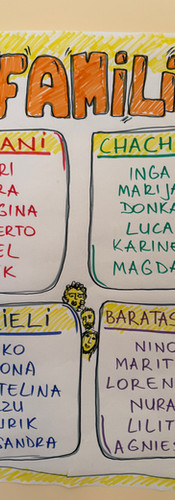 FAMILI
ANI
RI
RA
GINA
ERTO
EL
IK
CHACH
INGA
MARIJA
DONKA
LUCA
KARINE
MAGDA
IELI
KO
ONA
TELINA
ZU
URIK
SANDRA
BARATAS
NINO
MARIT
LOREN
NURA
LILIT
AGNIES